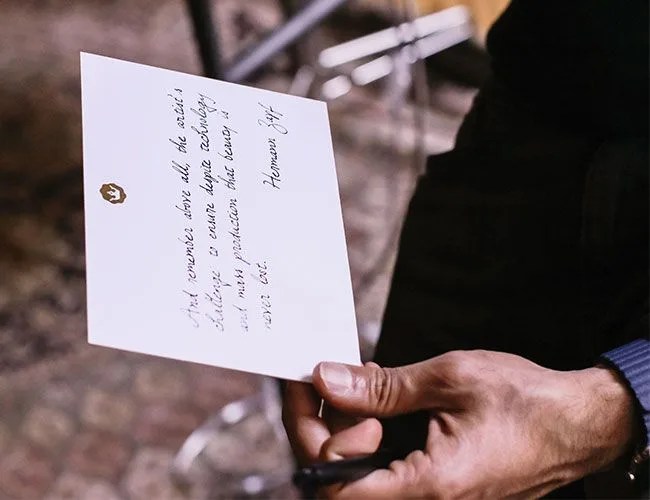 And remember above all, the artist's
challenge is ensure despite technology
and mass production that beauty is
never lost.
Hermann Zapf